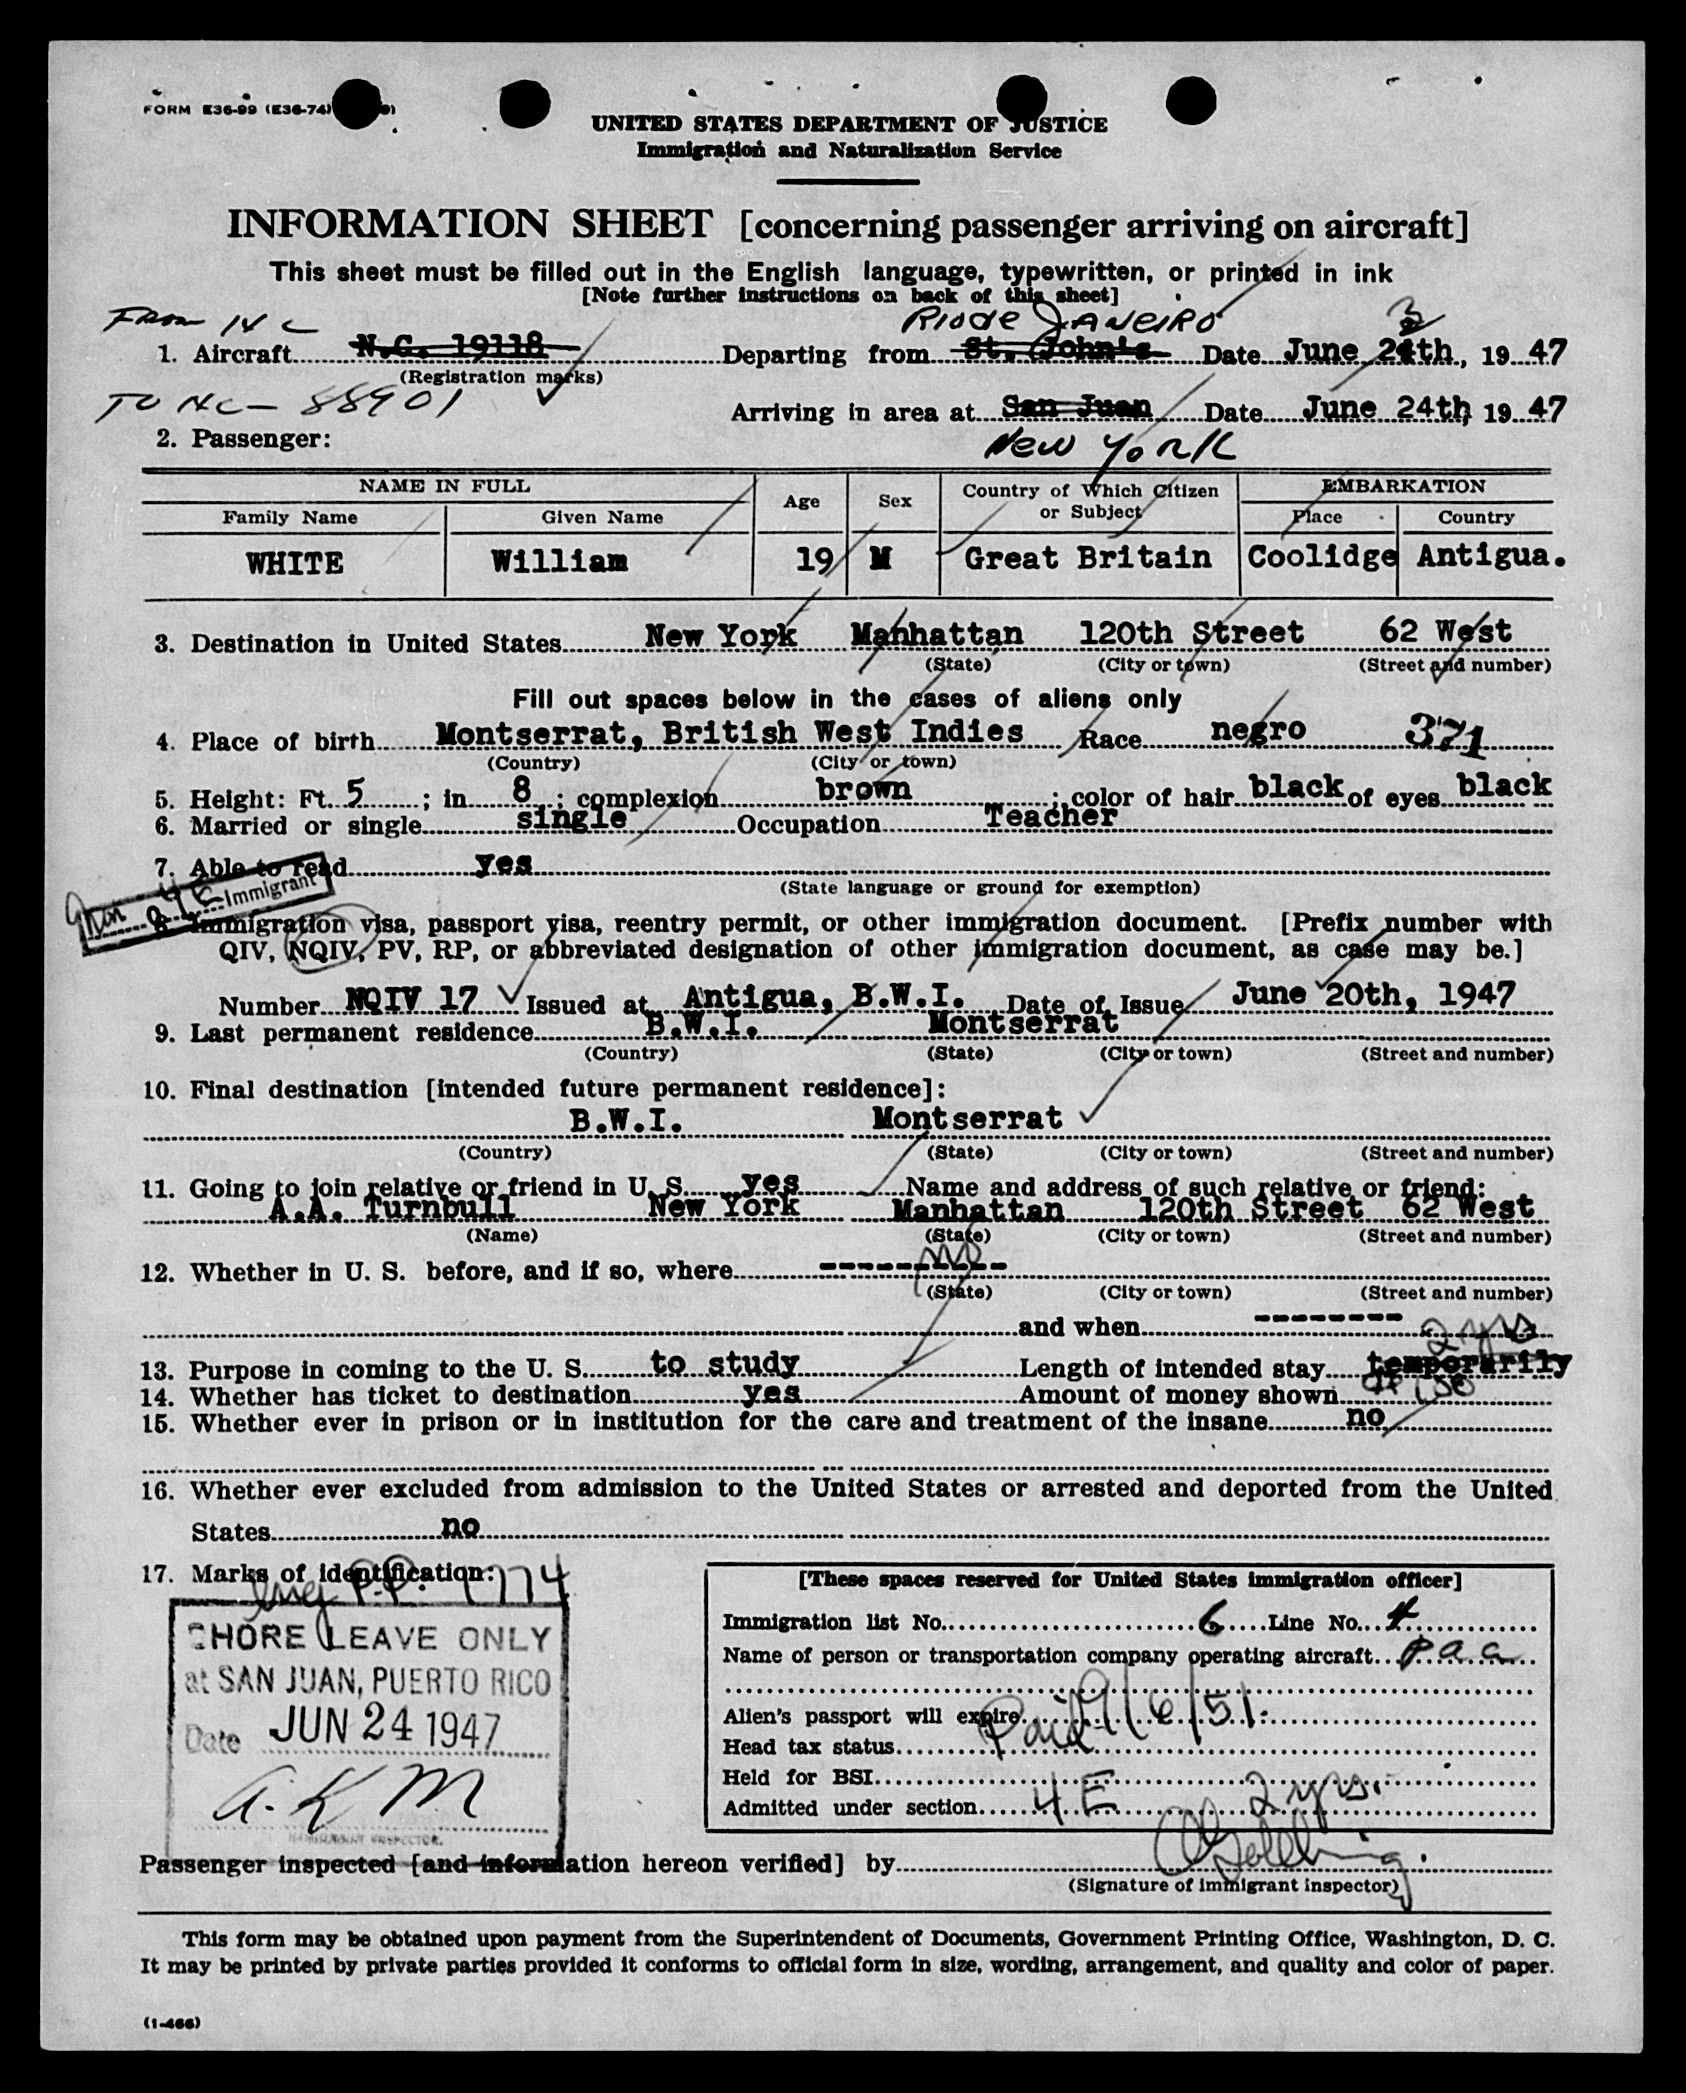 FORM E36-99 (E36-74)
UNITED STATES DEPARTMENT OF JUSTICE
Immigration and Naturalization Service
INFORMATION SHEET [concerning passenger arriving on aircraft]
This sheet must be filled out in the English language, typewritten, or printed in ink
[Note further instructions on back of this sheet]
From NC RIO de JANEIRO 3
1. Aircraft N.C. 19118 Departing from St. John's Date June 24th, 19 47
(Registration marks)
TO NC- 88901
Arriving in area at San Juan Date June 24th, 19 47
2. Passenger: New YORK
NAME IN FULL Age Sex Country of Which Citizen or Subject EMBARKATION
Family Name Given Name Place Country
WHITE William 19 M Great Britain Coolidge Antigua.
3. Destination in United States New York Manhattan 120th Street 62 West
(State) (City or town) (Street and number)
Fill out spaces below in the cases of aliens only
4. Place of birth Montserrat, British West Indies Race negro 371
(Country) (City or town)
5. Height: Ft. 5 ; in. 8 ; complexion brown ; color of hair black of eyes black
6. Married or single single Occupation Teacher
7. Able to read yes
(State language or ground for exemption)
Non 4E Immigrant
8. Immigration visa, passport visa, reentry permit, or other immigration document. [Prefix number with
QIV, NQIV, PV, RP, or abbreviated designation of other immigration document, as case may be.]
Number NQIV 17 Issued at Antigua, B.W.I. Date of Issue June 20th, 1947
9. Last permanent residence B.W.I. Montserrat
(Country) (State) (City or town) (Street and number)
10. Final destination [intended future permanent residence]:
B.W.I. Montserrat
(Country) (State) (City or town) (Street and number)
11. Going to join relative or friend in U. S. yes Name and address of such relative or friend:
A.A. Turnbull New York Manhattan 120th Street 62 West
(Name) (State) (City or town) (Street and number)
12. Whether in U. S. before, and if so, where ---------- no
(State) (City or town) (Street and number)
and when --------
2 yrs
13. Purpose in coming to the U. S. to study Length of intended stay temporarily
14. Whether has ticket to destination yes Amount of money shown 150
15. Whether ever in prison or in institution for the care and treatment of the insane no
16. Whether ever excluded from admission to the United States or arrested and deported from the United
States no
17. Marks of identification:
P.P. 1774
SHORE LEAVE ONLY
at SAN JUAN, PUERTO RICO
Date JUN 24 1947
A. K M
IMMIGRANT INSPECTOR.
[These spaces reserved for United States immigration officer]
Immigration list No. 6 Line No. 4
Name of person or transportation company operating aircraft p a a
Alien's passport will expire 9/6/51.
Head tax status Paid
Held for BSI
Admitted under section 4 E 2 yrs.
Passenger inspected [and information hereon verified] by
(Signature of immigrant inspector)
This form may be obtained upon payment from the Superintendent of Documents, Government Printing Office, Washington, D. C.
It may be printed by private parties provided it conforms to official form in size, wording, arrangement, and quality and color of paper.
(1-466)